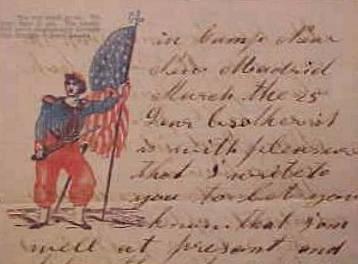 in Camp Near
New Madrid
March the 25
Dear brother it
is with pleasure
that I write to
you to let you
know that I am
well at present and